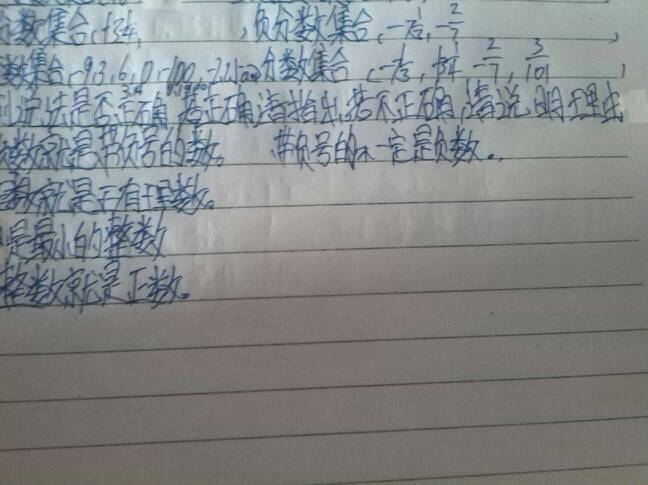 分数集合,+3¼, ,负分数集合,-7⅓,-2/7 ,
数集合,-93,6,0,-100,-2,1,200分数集合 ,3¼,-2/7,3/101,
说法是否正确,若正确请指出,若不正确,请说明理由
数就是带负号的数。 带负号的不一定是负数。
数就是正有理数。
是最小的整数
整数就是正数。